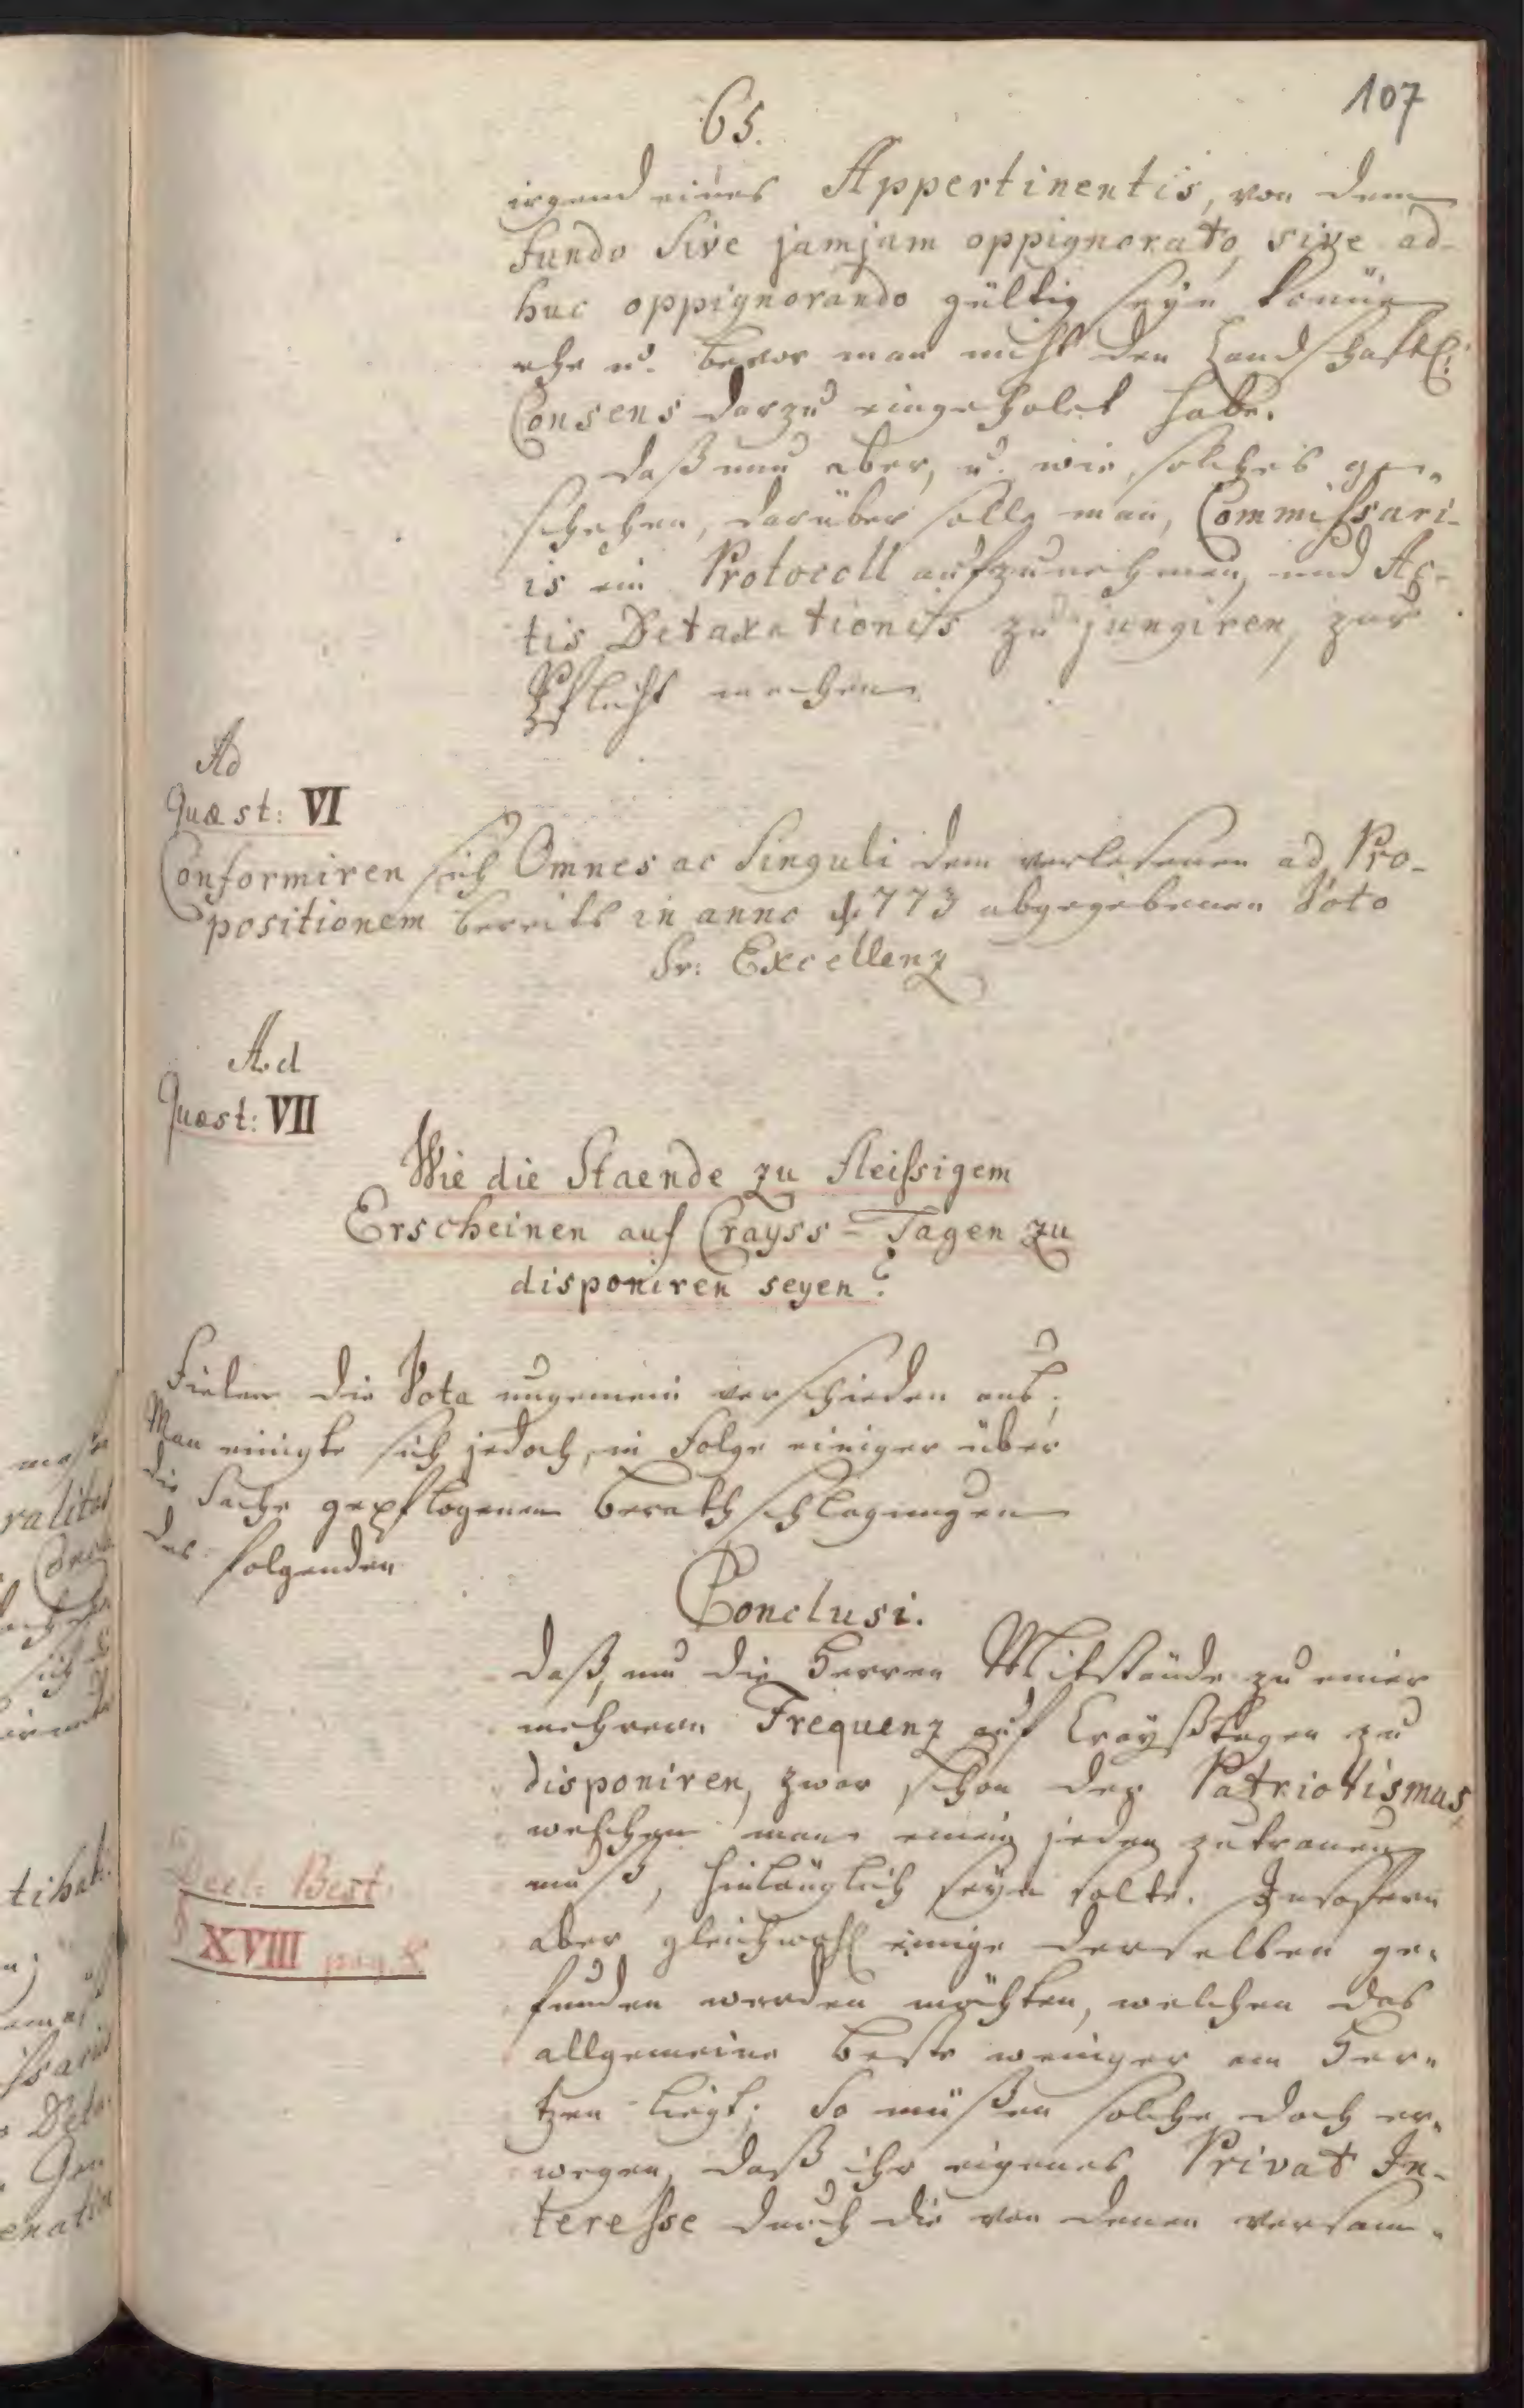 107
65.
irgend eines Appertinentis, von dem
fundo sive jamjam oppignorato, sive ad-
huc oppignorando gültig seyn könne
ehe u. bevor man nicht den Landschaftl:
Consens darzu eingeholet habe.
Daß nun aber, u. wie, solches ge-
schehen, darüber solle man, Commissari-
is ein Protocoll aufzunehmen, und Ac-
tis Detaxationis zu jungiren, zur
Pflicht machen
Ad
Quæst: VI
Conformiren sich Omnes ac Singuli dem verlesenen ad Pro-
positionem bereits in anno 1773 abgegebenen Voto
Sr: Excellenz
Ad
Quæst: VII
Wie die Staende zu fleissigem
Erscheinen auf Crayss-Tagen zu
disponiren seyen?
Fielen die Vota ungemein verschieden aus;
Man einigte sich jedoch, in Folge einiger über
die Sache gepflogenen Berathschlagungen
des folgenden
Conclusi.
Daß, um die Herren Mitstände zu einer
mehreren Frequenz auf Crayßtagen zu
disponiren, zwar schon der Patriotismus
welchen man einem jeden zutrauen
muß, hinlänglich seyn solte. Insofern
aber gleichwohl einige derselben ge-
funden werden möchten, welchen das
allgemeine Beste weniger am Her-
tzen liegt; So müßen solche doch er-
wegen, daß ihr eigenes Privat In-
teresse durch die von denen versam-
Decl: Best:
§ XVIII pag. 8